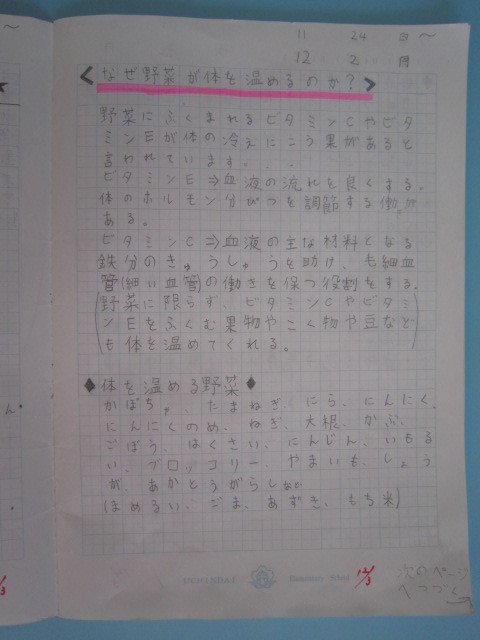 11 24 日〜
12 2 月
<なぜ野菜が体を温めるのか?>
野菜にふくまれるビタミンCやビタ
ミンEが体の冷えにこう果があると
言われています。
ビタミンE⇒血液の流れを良くする。
体のホルモン分ぴつを調節する働が
ある。
ビタミンC⇒血液の主な材料となる
鉄分のきゅうしゅうを助け、毛細血
管(細い血管)の働きを保つ役割をする。
(野菜に限らず、ビタミンCやビタミ
ンEをふくむ果物やこく物や豆など
も体を温めてくれる。)
◆体を温める野菜◆
かぼちゃ、たまねぎ、にら、にんにく、
にんにくのめ、ねぎ、大根、かぶ、
ごぼう、はくさい、にんじん、いもる
い、ブロッコリー、やまいも、しょう
が、あかとうがらしなど
(まめるい、ごま、あずき、もち米)
12/3
次のページ
へつづく→
ん。
/3